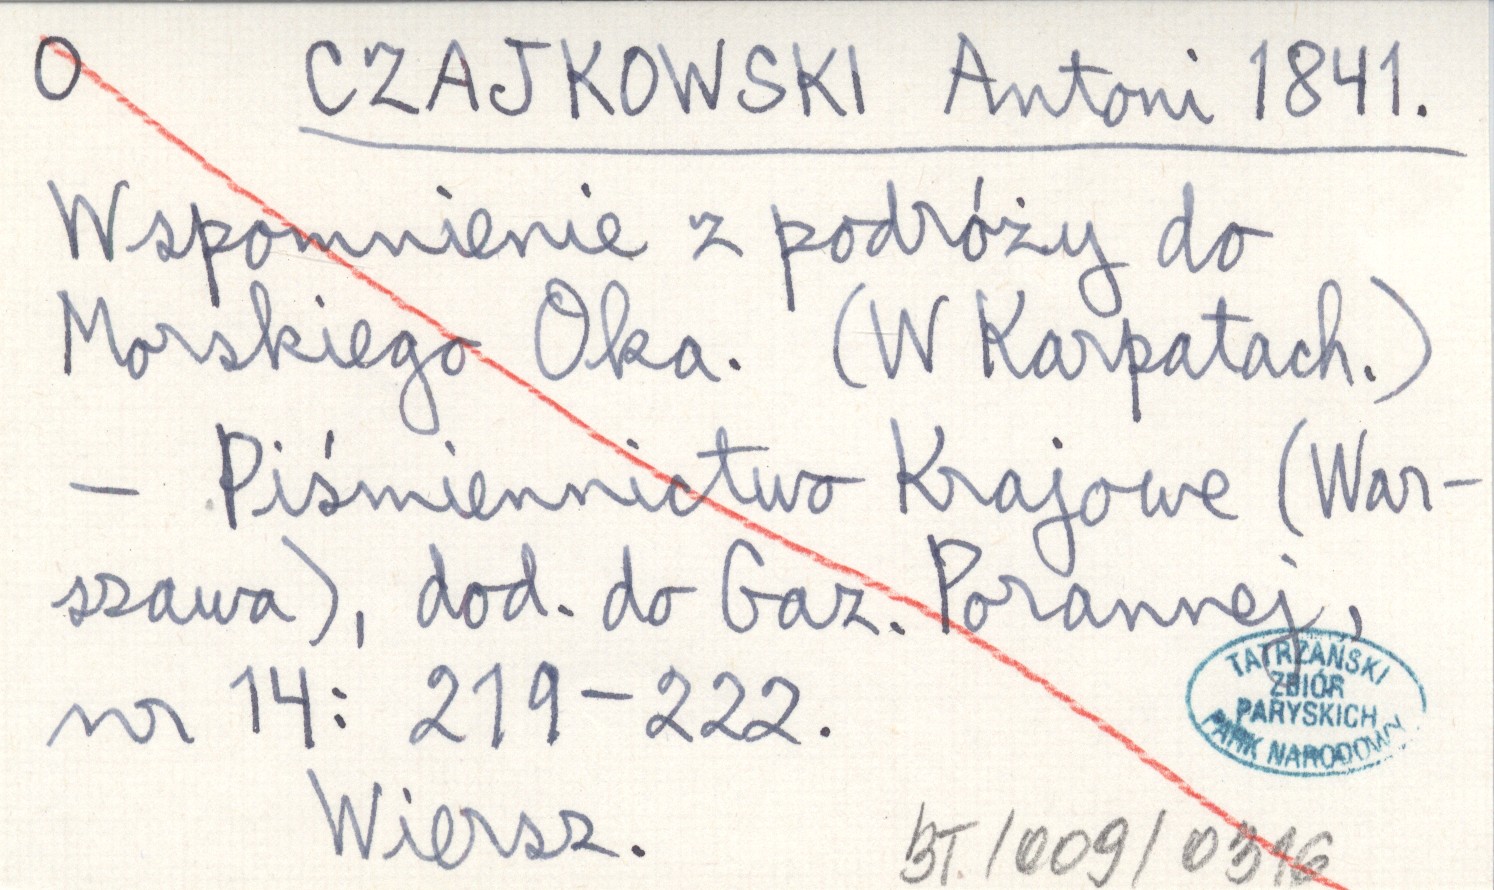 O CZAJKOWSKI Antoni 1841.
Wspomnienie z podróży do
Morskiego Oka. (W Karpatach.)
— Piśmiennictwo Krajowe (War-
szawa), dod. do Gaz. Porannej,
nr 14: 219–222.
Wiersz.
TATRZAŃSKI
ZBIÓR
PARYSKICH
PARK NARODOWY
BT./009/0316